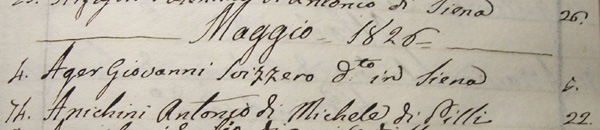 di Antonio di Siena 26.
Maggio 1826
4. Ager Giovanni Svizzero d.to in Siena 6.
74. Anichini Antonio di Michele di Pilli 22.